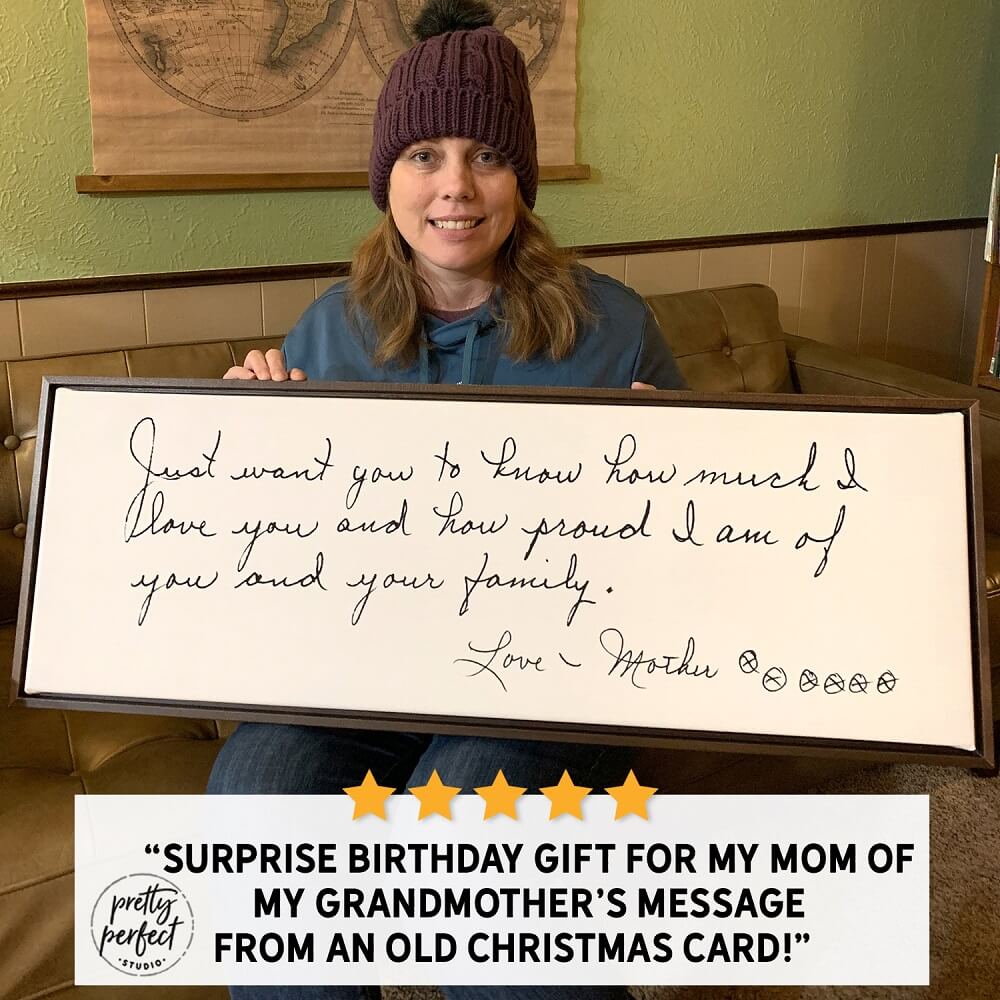 Just want you to know how much I
love you and how proud I am of
you and your family.
Love ~ Mother ⊗ ⊗ ⊗⊗⊗⊗
“SURPRISE BIRTHDAY GIFT FOR MY MOM OF
MY GRANDMOTHER’S MESSAGE
FROM AN OLD CHRISTMAS CARD!”
pretty
perfect
•STUDIO•